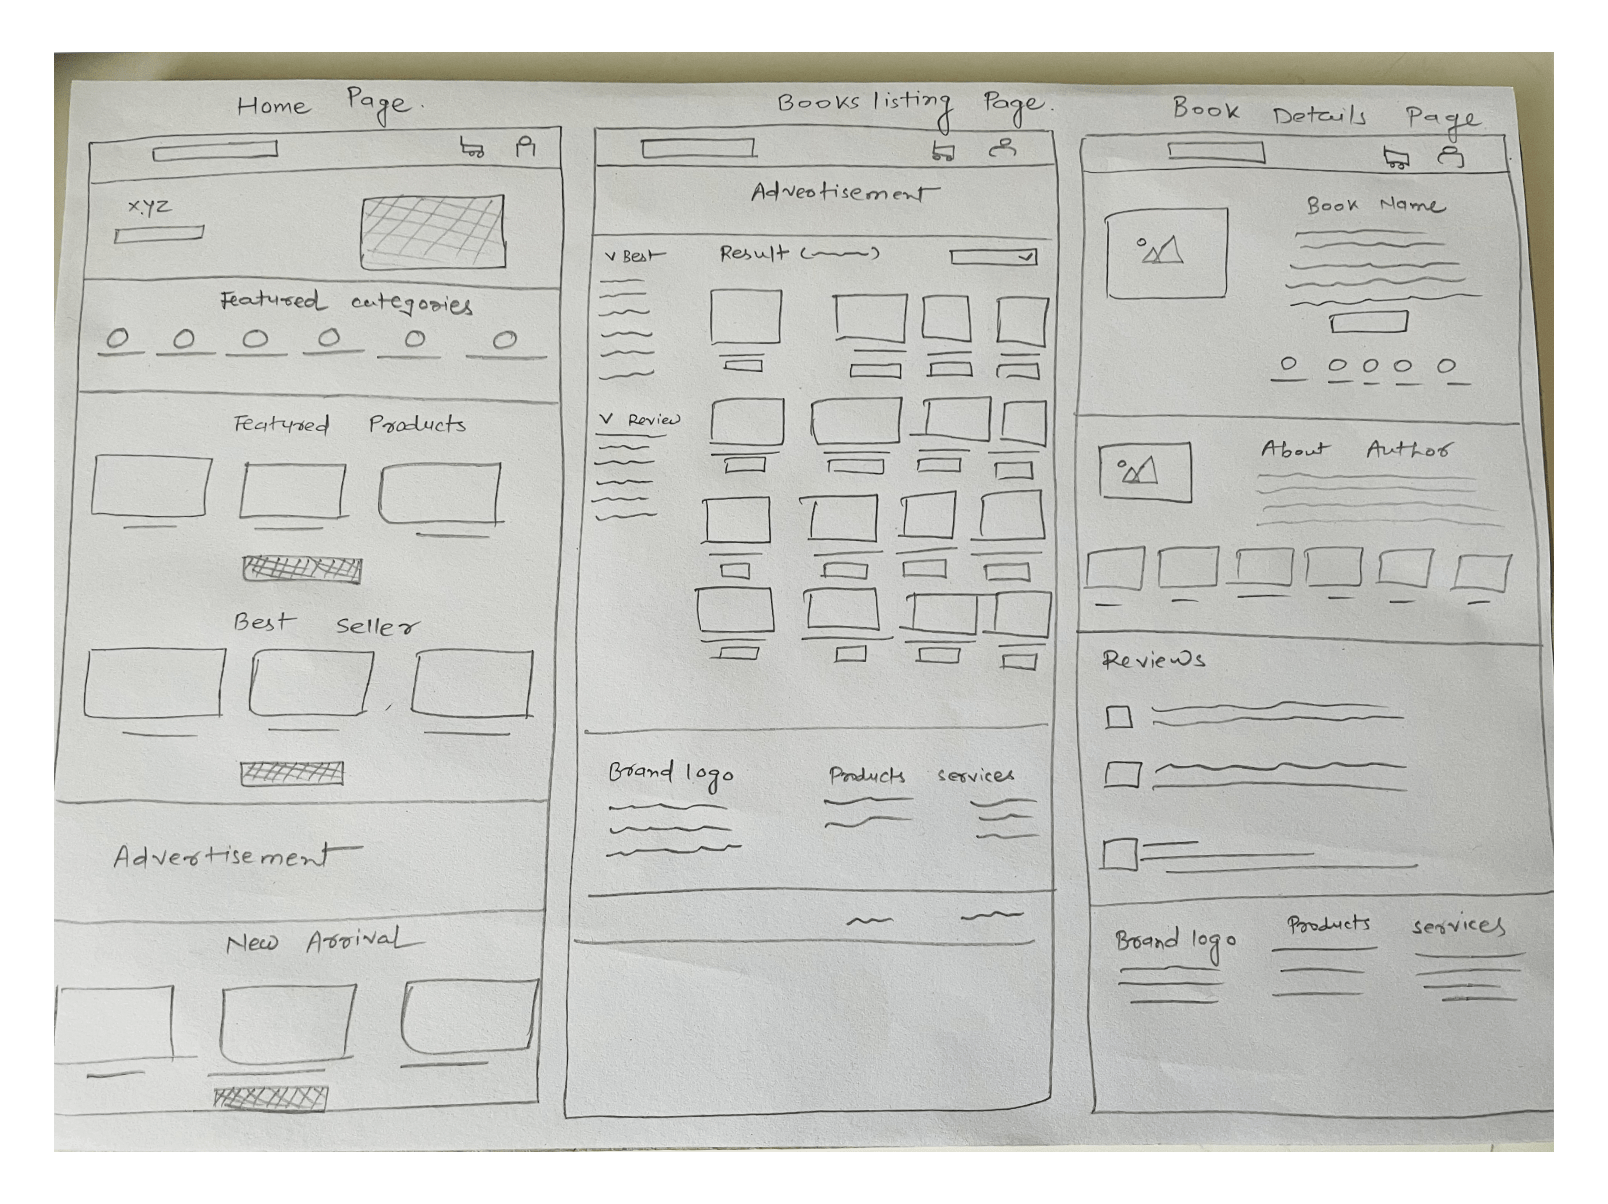 Home Page.
X.YZ
Featured categories
Featured Products
Best seller
Advertisement
New Arrival
Books listing Page.
Advertisement
Best
Result (
)
Review
Brand logo
Products
services
Book Details Page
Book Name
About Author
Reviews
Brand logo
Products
services